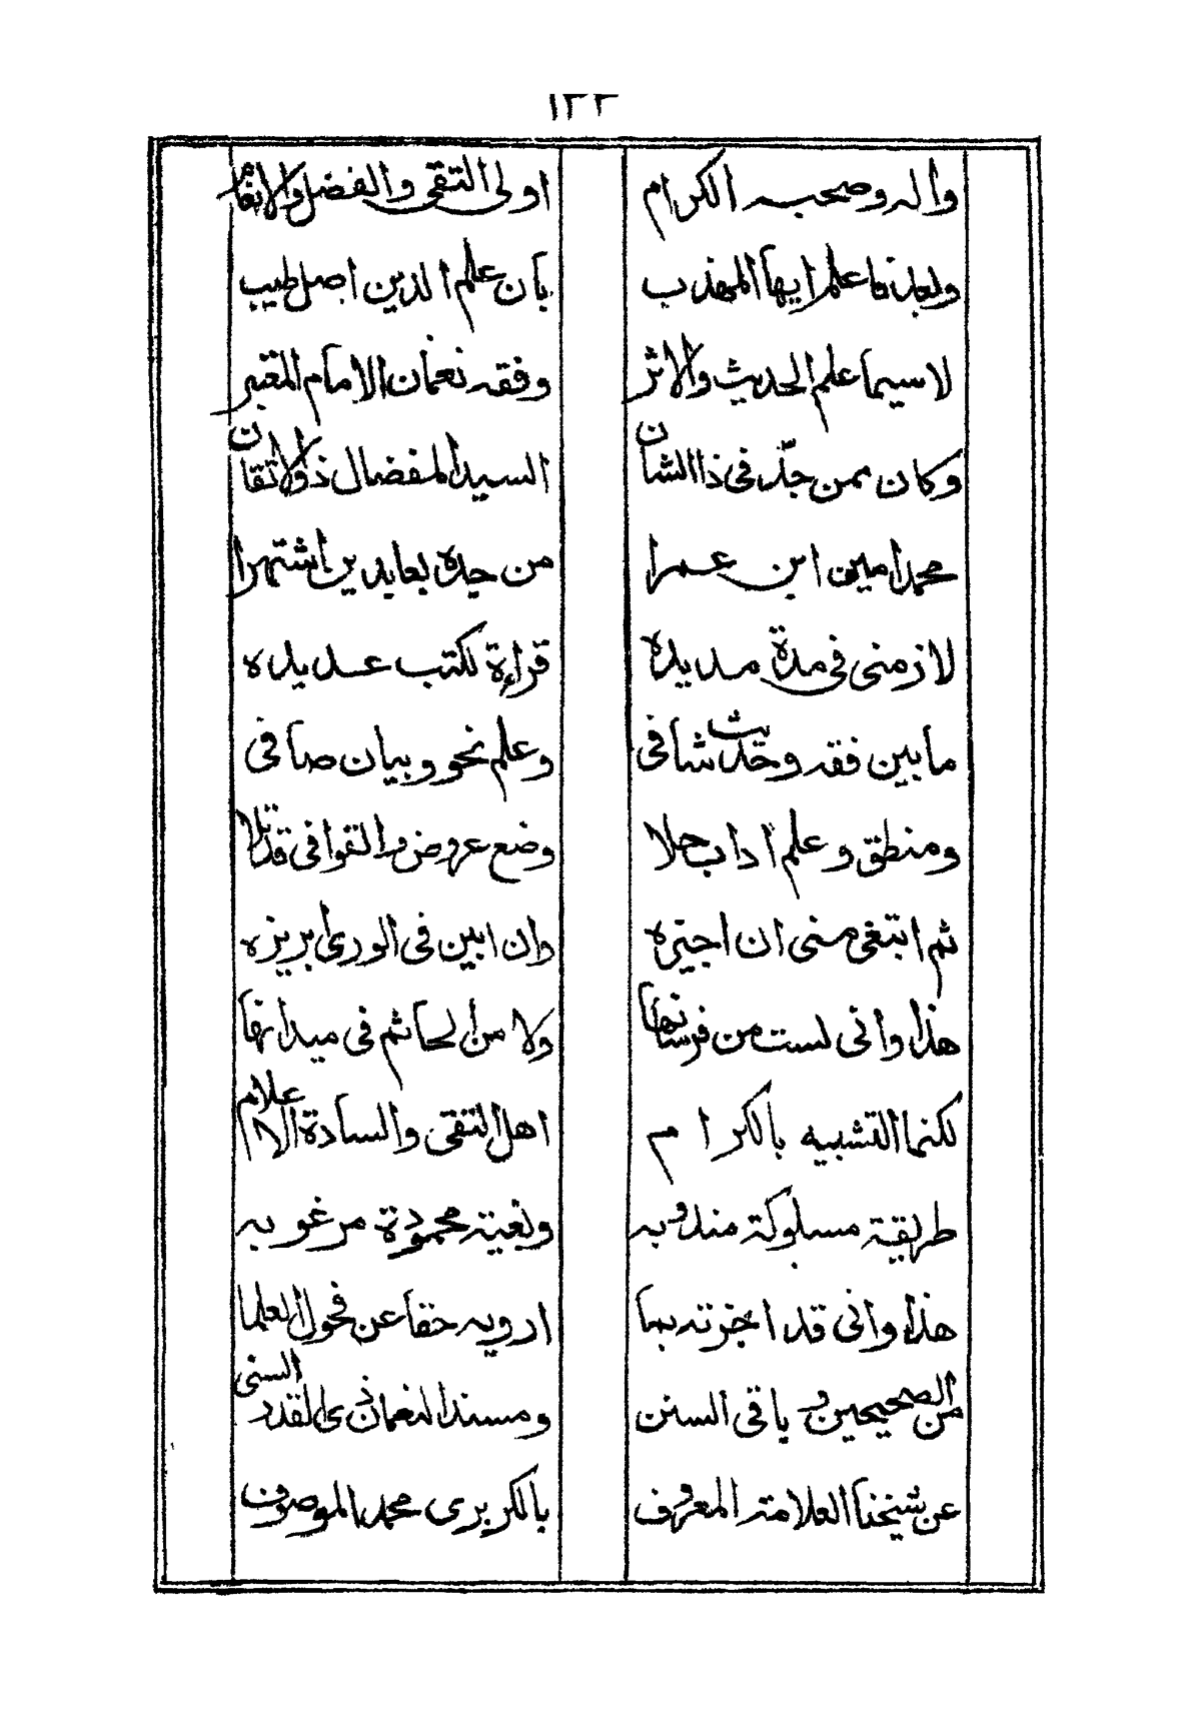 ١٣٣
واله وصحبه الكرام اولى التقى والفضل والانعام
وبعد فاعلم ايها المهذب بان علم الدين اصل طيب
لا سيما علم الحديث والاثر وفقه نعمان الامام المعتبر
وكان ممن جدّ فى ذا الشان السيد المفضال ذو الاتقان
محمد امين ابن عمرا من جده بعابدين اشتهرا
لازمنى فى مدة مديده قراءة لكتب عديده
ما بين فقه وحديث شافى وعلم نحو وبيان صافى
ومنطق وعلم اداب حلا وضع عروض والقوافى قد تلا
ثم ابتغى منى ان اجيزه وان ابين فى الورى ابريزه
هذا وانى لست من فرسانها ولا من الجاثم فى ميدانها
لكنما التشبيه بالكرام اهل التقى والسادة الاعلام
طريقة مسلوكة مندوبه وبغية محمودة مرغوبه
هذا وانى قد اجزته بما ارويه حقا عن فحول العلما
من الصحيحين وباقى السنن ومسند النعمان ذى القدر السنى
عن شيخنا العلامة المعروف بالكزبرى محمد الموصوف